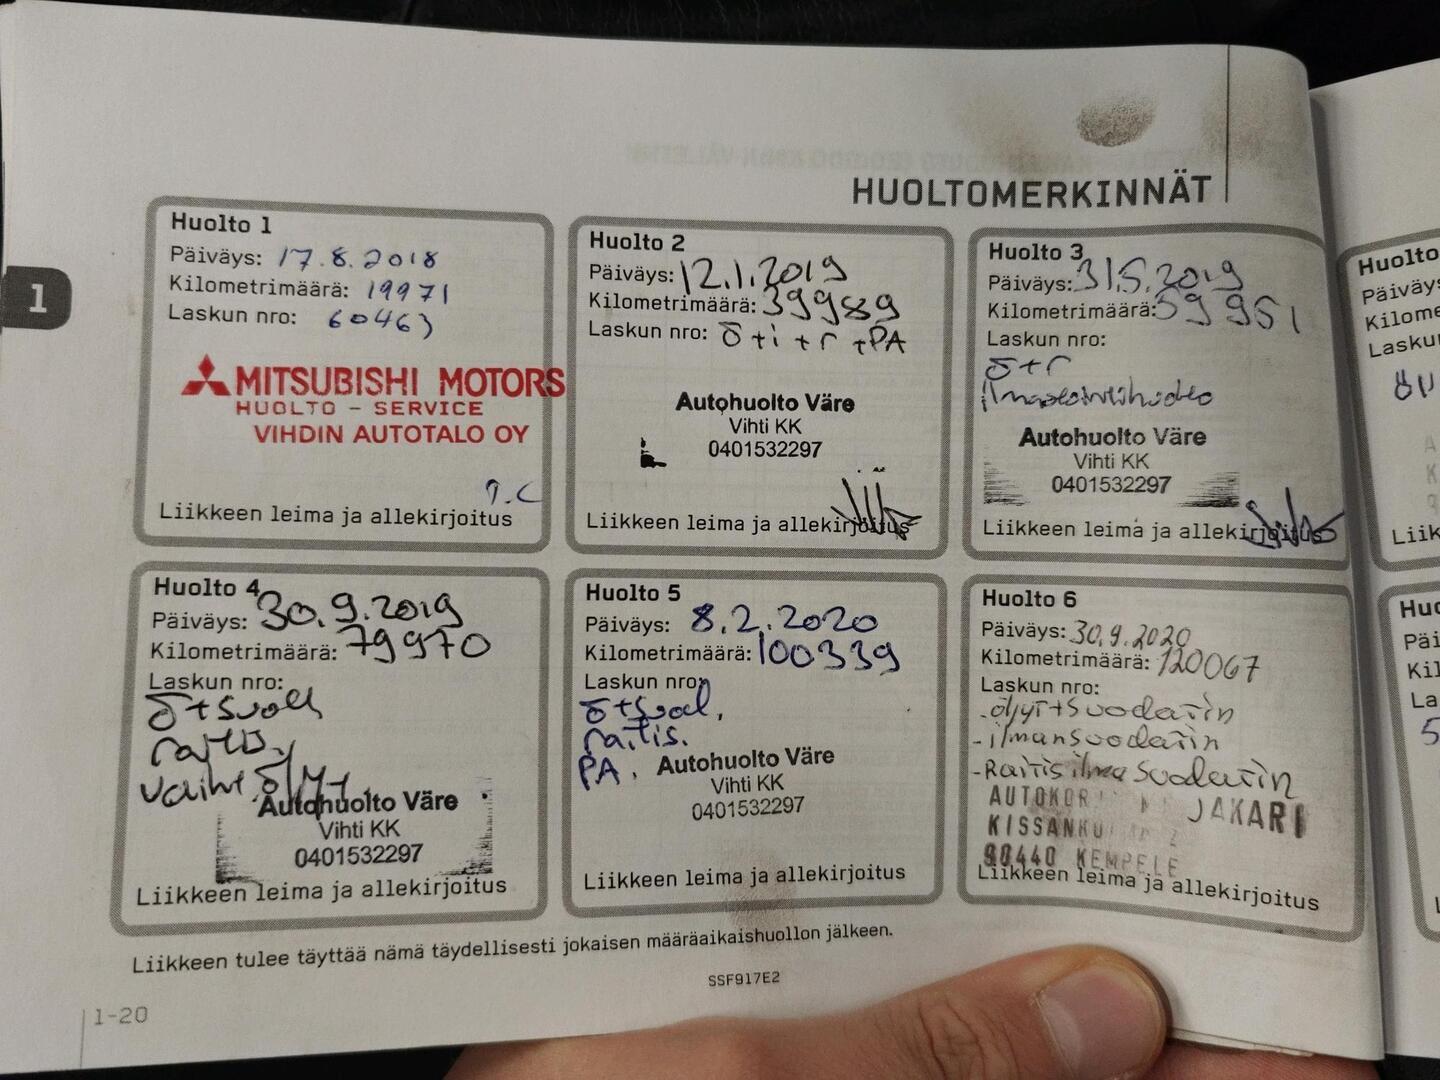 HUOLTOMERKINNÄT
1
Huolto 1
Päiväys: 17.8.2018
Kilometrimäärä: 19971
Laskun nro: 60463
MITSUBISHI MOTORS
HUOLTO - SERVICE
VIHDIN AUTOTALO OY
Liikkeen leima ja allekirjoitus
Huolto 2
Päiväys: 12.1.2019
Kilometrimäärä: 39989
Laskun nro: ö+i+r+PA
Autohuolto Väre
Vihti KK
0401532297
Liikkeen leima ja allekirjoitus
Huolto 3
Päiväys: 31.5.2019
Kilometrimäärä: 59951
Laskun nro:
ö+r
Autohuolto Väre
Vihti KK
0401532297
Liikkeen leima ja allekirjoitus
Huolto
Päiväys
Kilome
Lasku
Liik
Huolto 4
Päiväys: 30.9.2019
Kilometrimäärä: 79970
Laskun nro:
Autohuolto Väre
Vihti KK
0401532297
Liikkeen leima ja allekirjoitus
Huolto 5
Päiväys: 8.2.2020
Kilometrimäärä: 100339
Laskun nro:
ö+suod,
raitis.
PA.
Autohuolto Väre
Vihti KK
0401532297
Liikkeen leima ja allekirjoitus
Huolto 6
Päiväys: 30.9.2020
Kilometrimäärä: 120067
Laskun nro:
-öljyt+suodatin
-ilmansuodatin
-Raitisilmasuodatin
JAKARI
90440 KEMPELE
Liikkeen leima ja allekirjoitus
Huo
Päi
Kil
La
5
Liikkeen tulee täyttää nämä täydellisesti jokaisen määräaikaishuollon jälkeen.
SSF917E2
1-20